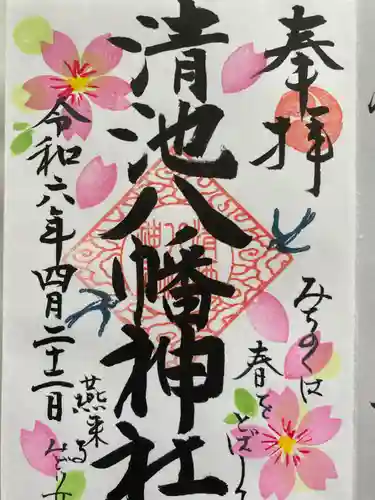 奉拝
清池八幡神社
令和六年四月二十一日
みちのくは
春をとばし
燕来る